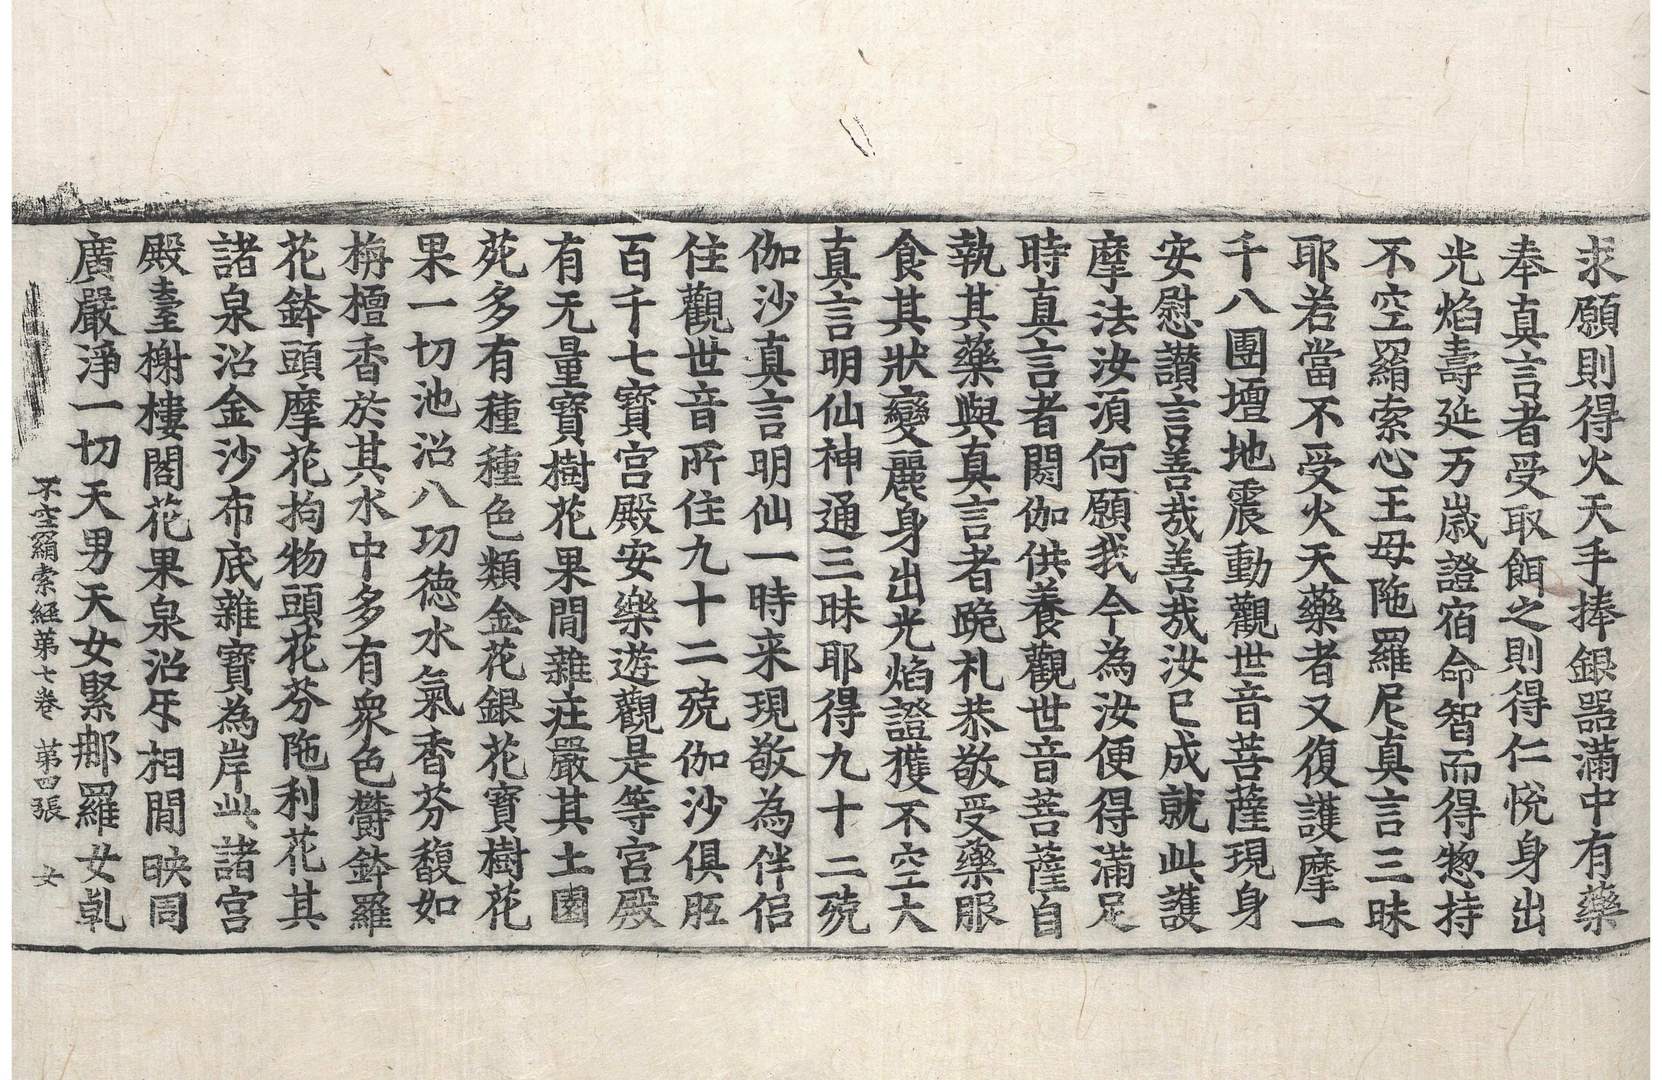 求願則得火天手捧銀器滿中有藥
奉真言者受取餌之則得仁悅身出
光焰壽延万歲證宿命智而得惣持
不空羂索心王母陁羅尼真言三昧
耶若當不受火天藥者又復護摩一
千八團壇地震動觀世音菩薩現身
安慰讃言善哉善哉汝已成就此護
摩法汝湏何願我今為汝便得滿足
時真言者閼伽供養觀世音菩薩自
執其藥與真言者跪礼恭敬受藥服
食其狀變麗身出光焰證獲不空大
真言明仙神通三昧耶得九十二殑
伽沙真言明仙一時来現敬為伴侣
住觀世音所住九十二殑伽沙俱胝
百千七寶宮殿安樂遊觀是等宮殿
有无量寶樹花果間雜莊嚴其土園
苑多有種種色類金花銀花寶樹花
果一切池沼八功德水氣香芬馥如
栴檀香於其水中多有衆色欝鉢羅
花鉢頭摩花拘物頭花芬陁利花其
諸泉沼金沙布底雜寶為岸此諸宮
殿臺榭樓閣花果泉沼㸦相間映同
廣嚴淨一切天男天女緊那羅女乹
不空羂索經第七卷 第四張 女